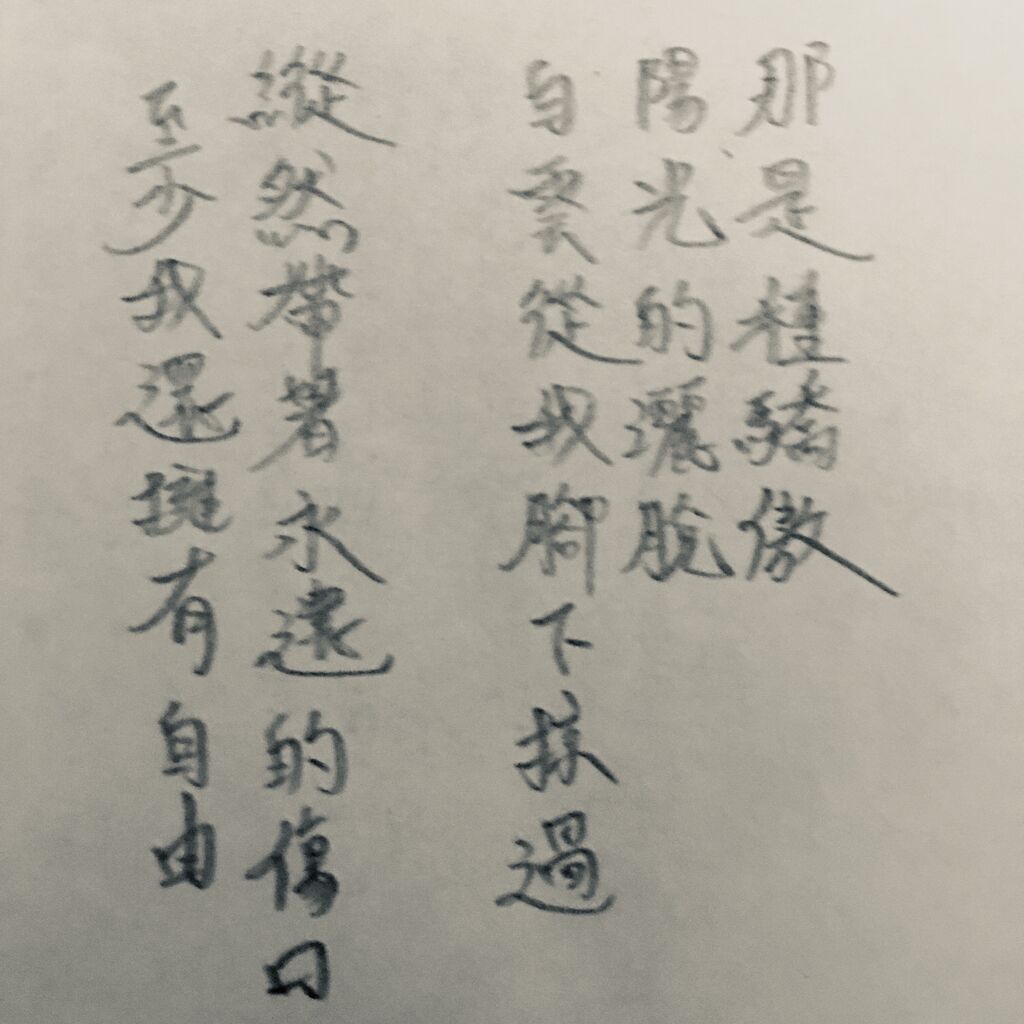 那是種驕傲
陽光的灑脫
白雲從我腳下掠過
縱然帶著永遠的傷口
至少我還擁有自由